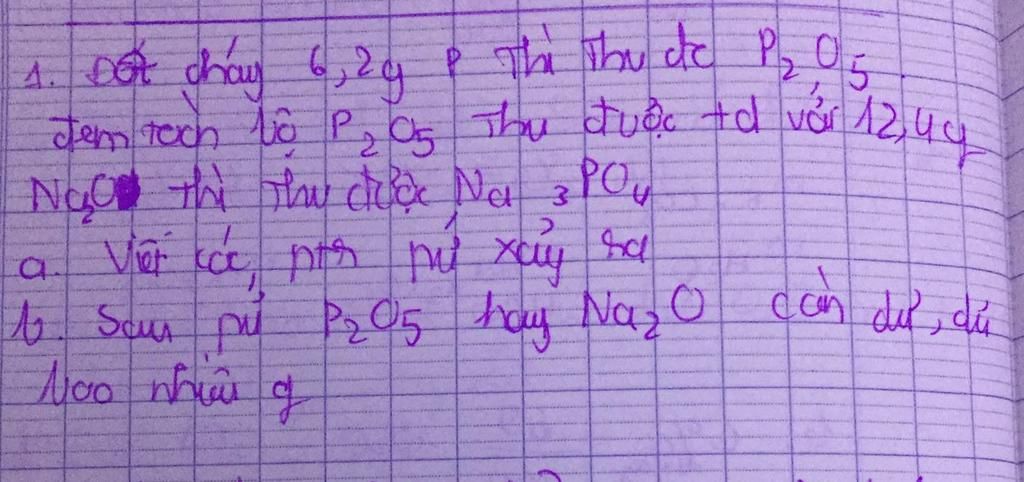 1. Đốt cháy 6,2g P thì thu đc P2O5.
đem toàn bộ P2O5 thu được td với 12,4g
Na2O thì thu được Na3PO4
a. Viết các ptr pứ xảy ra
b. Sau pứ P2O5 hay Na2O còn dư, dư
bao nhiêu g